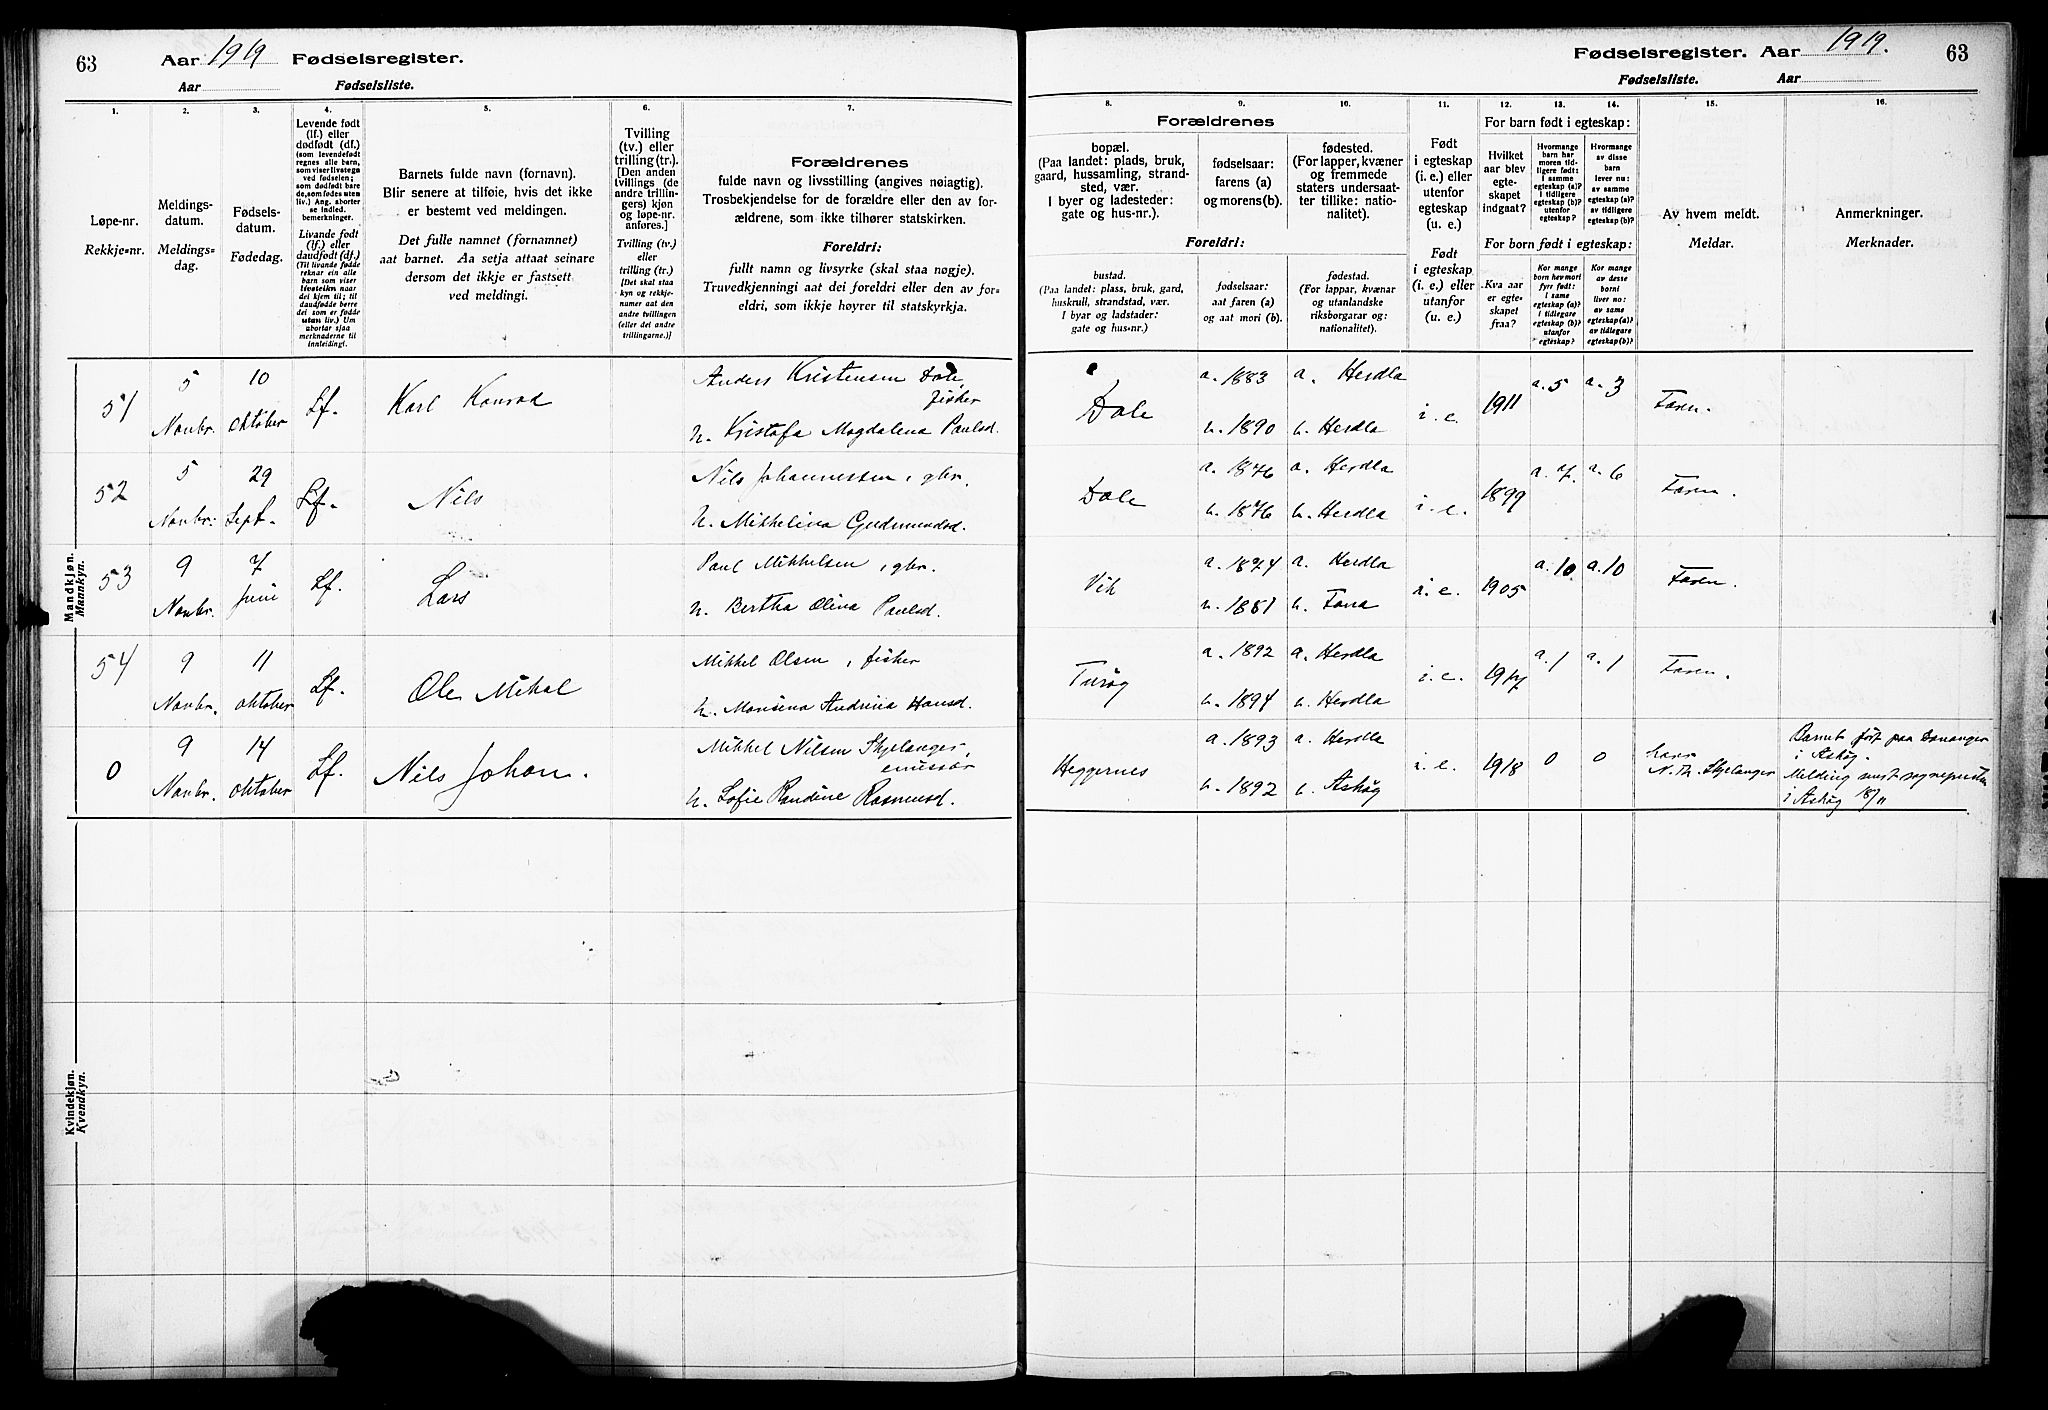 63 Aar 1919 Fødselsregister.
Aar Fødselsliste.
Fødselsregister. Aar 1919. 63
Fødselsliste. Aar
1. 2. 3. 4. 5. 6. 7.
Løpe-nr.
Rekkje-nr.
Meldings-
datum.
Meldings-
dag.
Fødsels-
datum.
Fødedag.
Levende født
(lf.) eller
dødfødt (df.)
(som levendefødt
regnes alle barn,
som viser livstegn
ved fødselen;
som dødfødt bare
de, som fødes uten
liv.) Ang. aborter
se indled.
bemerkninger.
Livande født
(lf.) eller
daudfødt (df.)
(Til livande fødde
reknar ein alle
barn som viser
livsteikn naar
dei kjem til; til
daudfødde berre
dei som er fødde
utan liv.) Um
abortar sjaa
merknaderne til
innleidingi.
Barnets fulde navn (fornavn).
Blir senere at tilføie, hvis det ikke
er bestemt ved meldingen.
Det fulle namnet (fornamnet)
aat barnet. Aa setja attaat seinare
dersom det ikkje er fastsett
ved meldingi.
Tvilling
(tv.) eller
trilling (tr.).
[Den anden
tvillings (de
andre trillin-
gers) kjøn
og løpe-nr.
anføres.]
Tvilling (tv.)
eller
trilling (tr.)
[Det skal staa
kyn og rekkje-
numer aat den
andre tvillingen
(eller dei andre
trillingarne.)]
Forældrenes
fulde navn og livsstilling (angives nøiagtig).
Trosbekjendelse for de forældre eller den av for-
ældrene, som ikke tilhører statskirken.
Foreldri:
fullt namn og livsyrke (skal staa nøgje).
Truvedkjenningi aat dei foreldri eller den av for-
eldri, som ikkje høyrer til statskyrkja.
8. 9. 10. 11. 12. 13. 14. 15. 16.
Forældrenes
bopæl.
(Paa landet: plads, bruk,
gaard, hussamling, strand-
sted, vær.
I byer og ladesteder:
gate og hus-nr.).
fødselsaar:
farens (a)
og morens(b).
fødested.
(For lapper, kvæner
og fremmede
staters undersaat-
ter tillike: natio-
nalitet).
Foreldri:
bustad.
(Paa landet: plass, bruk, gard,
huskrull, strandstad, vær.
I byar og ladstader:
gate og hus-nr.)
fødselsaar:
aat faren (a)
og aat mori (b).
fødestad.
(For lappar, kvænar
og utanlandske
riksborgarar og:
nationalitet).
Født
i egteskap
(i. e.) eller
utenfor
egteskap
(u. e.)
Født
i egteskap
(i. e.) eller
utanfor
(u. e.)
For barn født i egteskap:
Hvilket
aar blev
egte-
skapet
indgaat?
Hvormange
barn har
moren tid-
ligere født:
I samme
egteskap (a)?
I tidligere
egteskap (b)?
utenfor
egteskap?
Hvormange
av disse
barn
lever nu:
av samme
egteskap (a)?
av tidligere
egteskap (b)?
For born født i egteskap:
Kva aar
er egte-
skapet
fraa?
Kor mange
born hev mori
fyrr født:
I same
egteskap (a)?
I tidlegare
egteskap (b)?
utanfor
egteskap?
Kor mange
av desse
borni
liver no:
av same
egteskap(a)?
av tidlegare
egteskap(b)?
Av hvem meldt.
Meldar.
Anmerkninger.
Merknader.
Mandkjøn.
Mannkyn.
Kvindekjøn.
Kvendkyn.
51 5 Novbr. 10 oktober Lf. Karl Konrad Anders Kristensen Dale, fisker
h. Kristofa Magdalena Paulsd.
Dale a. 1883 a. Herdla i. e. 1911 a. 5 a. 3 Faren.
h. 1890 h. Herdla
52 5 Novbr. 29 Sept. Lf. Nils Nils Johannessen, gbr.
h. Mikkelina Gudmundsd.
Dale a. 1876 a. Herdla i. e. 1899 a. 7. a. 6 Faren.
h. 1876 h. Herdla
53 9 Novbr. 7 Juni Lf. Lars Paul Mikkelsen, gbr.
h. Bertha Olina Paulsd.
Vik a. 1874 a. Herdla i. e. 1905 a. 10 a. 10 Faren.
h. 1881 h. Fana
54 9 Novbr. 11 oktober Lf. Ole Mikal Mikkel Olsen, fisker
h. Monsina Andrina Hansd.
Turøy a. 1892 a. Herdla i. e. 1917 a. 1 a. 1 Faren.
h. 1894 h. Herdla
0 9 Novbr. 14 oktober Lf. Nils Johan. Mikkel Nilsen Skjelanger,
emissær
h. Sofie Randine Rasmusd.
Heggernes a. 1893 a. Herdla i. e. 1918 0 0 N. Th. Skjelanger
h. 1892 h. Askøy
Barnet født paa Davanger
i Askøy.
Melding sendt sognepresten
i Askøy 18/11